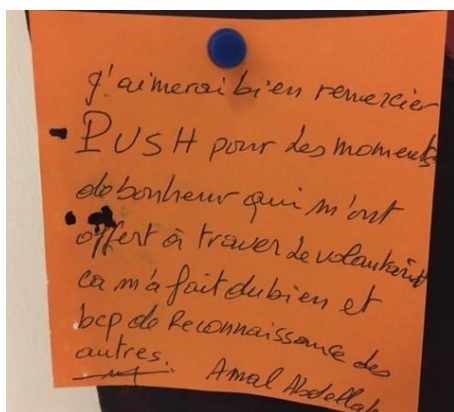 J'aimerai bien remercier
PUSH pour des moments
de bonheur qui m'ont
offert à traver le volantariat
ca m'a fait du bien et
bcp de Reconnaissance des
autres.
Amal Abdellah